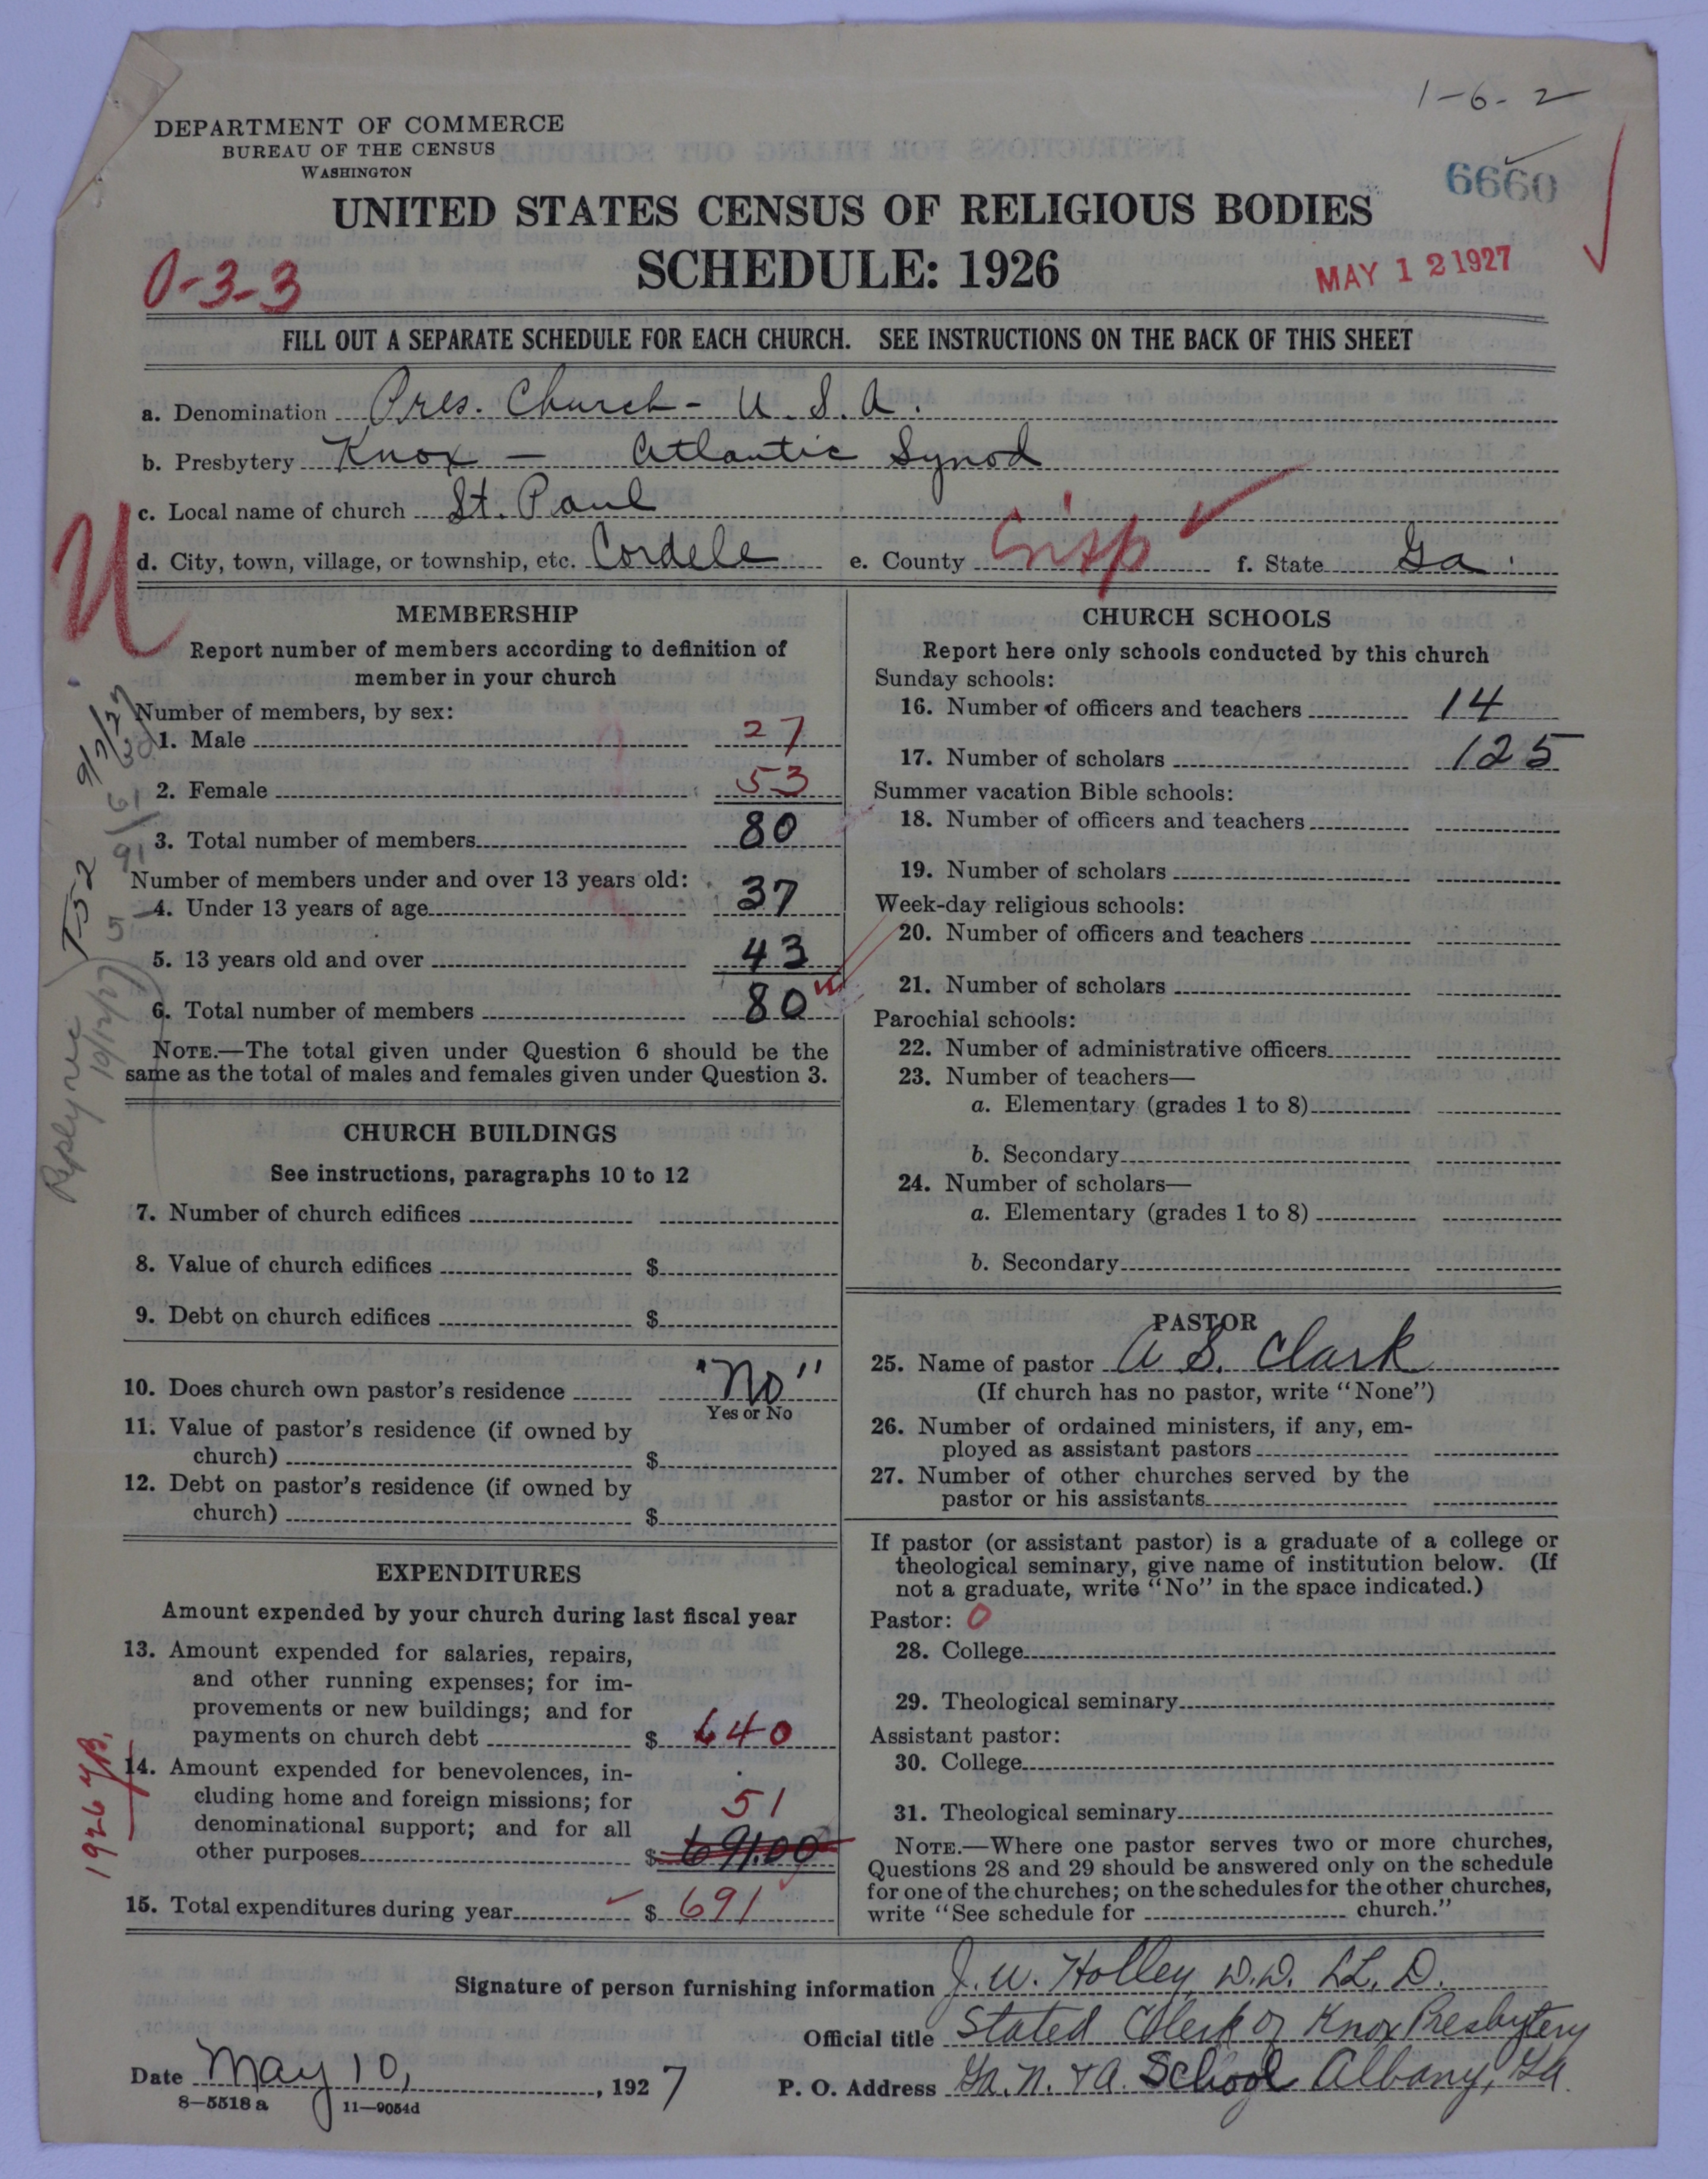 1-6-2
DEPARTMENT OF COMMERCE
BUREAU OF THE CENSUS
WASHINGTON
6660
UNITED STATES CENSUS OF RELIGIOUS BODIES
SCHEDULE: 1926
0-3-3
MAY 12 1927
FILL OUT A SEPARATE SCHEDULE FOR EACH CHURCH. SEE INSTRUCTIONS ON THE BACK OF THIS SHEET
a. Denomination Pres. Church - U.S.A.
b. Presbytery Knox — Atlantic Synod
c. Local name of church St. Paul
d. City, town, village, or township, etc. Cordele e. County Crisp f. State Ga.
U
MEMBERSHIP
Report number of members according to definition of
member in your church
Number of members, by sex:
1. Male 27
2. Female 53
3. Total number of members 80
Number of members under and over 13 years old:
4. Under 13 years of age 37
5. 13 years old and over 43
6. Total number of members 80
NOTE.—The total given under Question 6 should be the
same as the total of males and females given under Question 3.
9/7/27
T-5-2
10/12/27
CHURCH BUILDINGS
See instructions, paragraphs 10 to 12
7. Number of church edifices
8. Value of church edifices $
9. Debt on church edifices $
10. Does church own pastor's residence "No"
Yes or No
11. Value of pastor's residence (if owned by
church) $
12. Debt on pastor's residence (if owned by
church) $
EXPENDITURES
Amount expended by your church during last fiscal year
13. Amount expended for salaries, repairs,
and other running expenses; for im-
provements or new buildings; and for
payments on church debt $ 640
1926 YB.
14. Amount expended for benevolences, in-
cluding home and foreign missions; for 51
denominational support; and for all
other purposes $ 691.00
15. Total expenditures during year $ 691
CHURCH SCHOOLS
Report here only schools conducted by this church
Sunday schools:
16. Number of officers and teachers 14
17. Number of scholars 125
Summer vacation Bible schools:
18. Number of officers and teachers
19. Number of scholars
Week-day religious schools:
20. Number of officers and teachers
21. Number of scholars
Parochial schools:
22. Number of administrative officers
23. Number of teachers—
a. Elementary (grades 1 to 8)
b. Secondary
24. Number of scholars—
a. Elementary (grades 1 to 8)
b. Secondary
PASTOR
25. Name of pastor A S. Clark
(If church has no pastor, write "None")
26. Number of ordained ministers, if any, em-
ployed as assistant pastors
27. Number of other churches served by the
pastor or his assistants
If pastor (or assistant pastor) is a graduate of a college or
theological seminary, give name of institution below. (If
not a graduate, write "No" in the space indicated.)
Pastor: 0
28. College
29. Theological seminary
Assistant pastor:
30. College
31. Theological seminary
NOTE.—Where one pastor serves two or more churches,
Questions 28 and 29 should be answered only on the schedule
for one of the churches; on the schedules for the other churches,
write "See schedule for church."
Signature of person furnishing information J. W. Holley, D.D. LL.D.
Official title Stated Clerk of Knox Presbytery
Date May 10, 1927 P. O. Address Ga. N. & A. School Albany, Ga.
8—5518 a 11—9054d